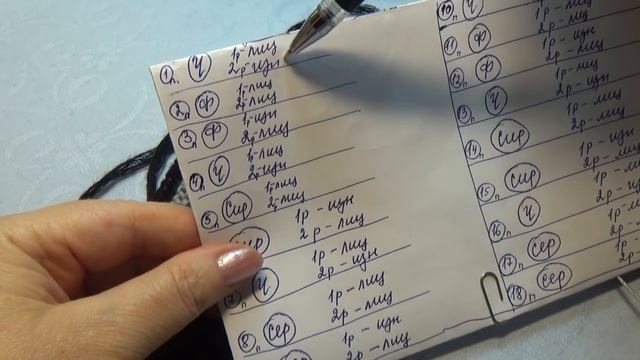 1п Ч 1р-лиц
2р-изн
2п Ф 1р-лиц
2р-лиц
3п Ф 1р-изн
2р-лиц
4п Ч 1р-лиц
2р-изн
5п Сир 1р-лиц
2р-лиц
1р - изн
2р - лиц
7п Ч 1р - лиц
2р - изн
8п Сер 1р - лиц
2р - лиц
1р - изн
2р - лиц
10п Ч
2р - лиц
11п Ф 1р - изн
2р - лиц
12п Ф 1р - лиц
2р - изн
13п Ч 1р - лиц
2р - лиц
14п Сир 1р - изн
2р - лиц
15п Сир 1р - лиц
2р -
16п Ч 1р -
2р -
17п Сер 1р -
2р -
18п Сер 1р
2р